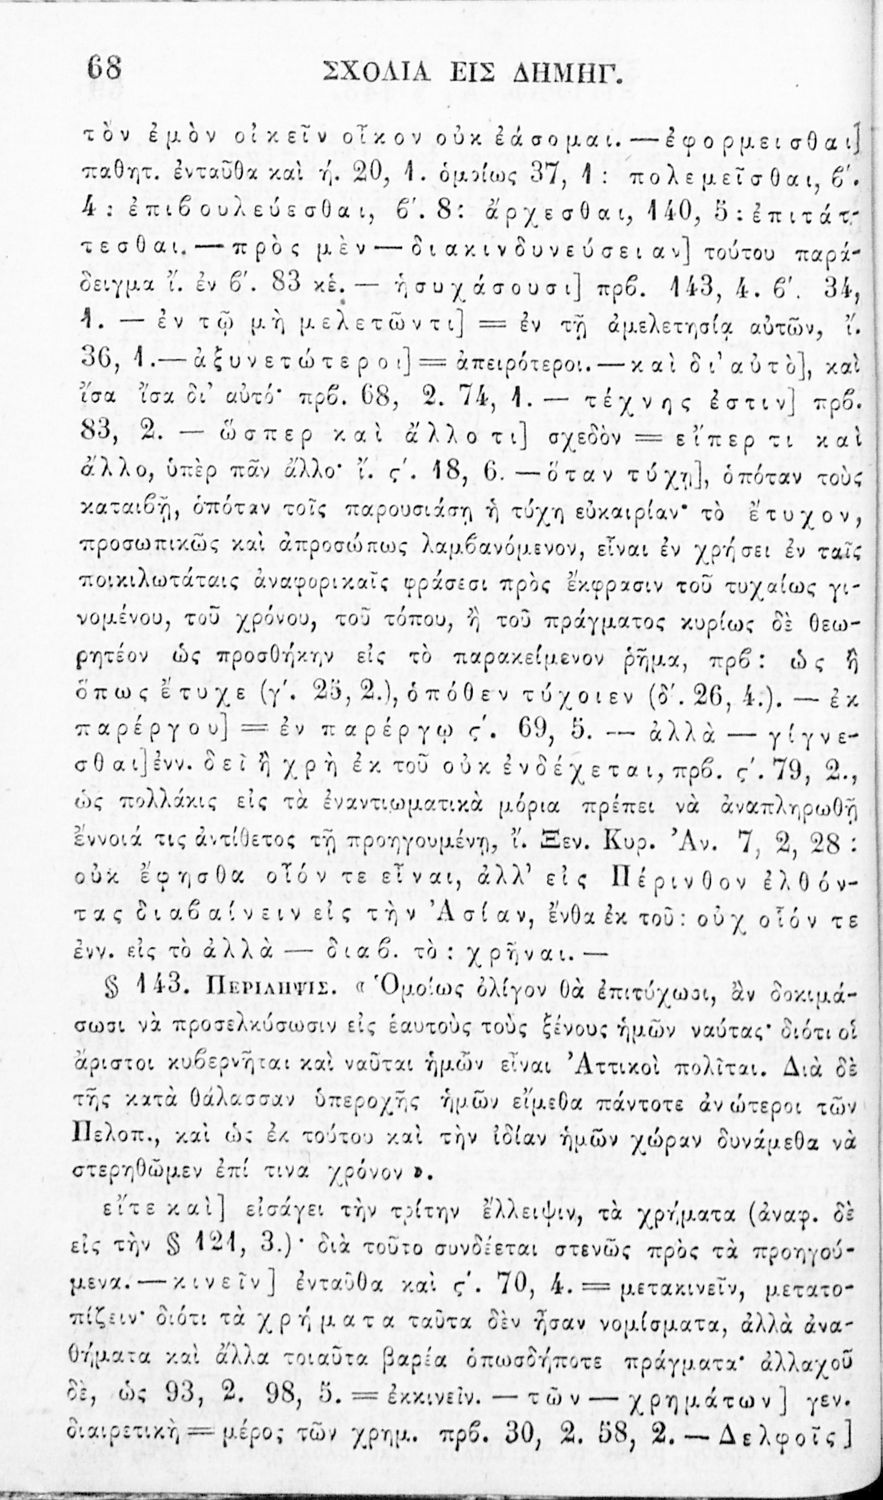 68 ΣΧΟΛΙΑ ΕΙΣ ΔΗΜΗΓ.
τὸν ἐμὸν οἰκεῖν οἶκον οὐκ ἐάσομαι. — ἐφορμεισθαι]
παθητ. ἐνταῦθα καὶ ή. 20, 1. ὁμοίως 37, 1 : πολεμεῖσθαι, β´.
4 : ἐπιβουλεύεσθαι, β´. 8: ἄρχεσθαι, 140, 5 : ἐπιτάτ-
τεσθαι. — πρὸς μὲν — διακινδυνεύσειαν] τούτου παρά-
δειγμα ἴ. ἐν β´. 83 κἑ. — ἡσυχάσουσι] πρβ. 143, 4. β´. 34,
1. — ἐν τῷ μὴ μελετῶντι] = ἐν τῇ ἀμελετησίᾳ αὐτῶν, ἴ.
36, 1. — ἀξυνετώτεροι] = ἀπειρότεροι. — καὶ δι’ αὐτὸ], καὶ
ἴσα ἴσα δι’ αὐτό· πρβ. 68, 2. 74, 1. — τέχνης ἐστιν] πρβ.
83, 2. — ὥσπερ καὶ ἄλλο τι] σχεδὸν = εἴπερ τι καὶ
ἄλλο, ὑπὲρ πᾶν ἄλλο· ἴ. ς´. 18, 6. — ὅταν τύχῃ], ὁπόταν τοὺς
καταιβῇ, ὁπόταν τοῖς παρουσιάσῃ ἡ τύχη εὐκαιρίαν· τὸ ἔτυχον,
προσωπικῶς καὶ ἀπροσώπως λαμβανόμενον, εἶναι ἐν χρήσει ἐν ταῖς
ποικιλωτάταις ἀναφορικαῖς φράσεσι πρὸς ἔκφρασιν τοῦ τυχαίως γι-
νομένου, τοῦ χρόνου, τοῦ τόπου, ἢ τοῦ πράγματος κυρίως δὲ θεω-
ρητέον ὡς προσθήκην εἰς τὸ παρακείμενον ῥῆμα, πρβ : ὡς ἢ
ὅπως ἔτυχε (γ´. 25, 2.), ὁπόθεν τύχοιεν (δ´. 26, 4.). — ἐκ
παρέργου] = ἐν παρέργῳ ς´. 69, 5. — ἀλλὰ — γίγνε-
σθαι] ἐνν. δεῖ ἢ χρὴ ἐκ τοῦ οὐκ ἐνδέχεται, πρβ. ς´. 79, 2.,
ὡς πολλάκις εἰς τὰ ἐναντιωματικὰ μόρια πρέπει νὰ ἀναπληρωθῇ
ἔννοιά τις ἀντίθετος τῇ προηγουμένῃ, ἴ. Ξεν. Κυρ. Ἀν. 7, 2, 28 :
οὐκ ἔφησθα οἷόν τε εἶναι, ἀλλ’ εἰς Πέρινθον ἐλθόν-
τας διαβαίνειν εἰς τὴν Ἀσίαν, ἔνθα ἐκ τοῦ : οὐχ οἷόν τε
ἐνν. εἰς τὸ ἀλλὰ — διαβ. τὸ : χρῆναι. —
§ 143. ΠΕΡΙΛΗΨΙΣ. « Ὁμοίως ὀλίγον θὰ ἐπιτύχωσι, ἂν δοκιμά-
σωσι νὰ προσελκύσωσιν εἰς ἑαυτοὺς τοὺς ξένους ἡμῶν ναύτας· διότι οἱ
ἄριστοι κυβερνῆται καὶ ναῦται ἡμῶν εἶναι Ἀττικοὶ πολῖται. Διὰ δὲ
τῆς κατὰ θάλασσαν ὑπεροχῆς ἡμῶν εἴμεθα πάντοτε ἀνώτεροι τῶν
Πελοπ., καὶ ὡς ἐκ τούτου καὶ τὴν ἰδίαν ἡμῶν χώραν δυνάμεθα νὰ
στερηθῶμεν ἐπί τινα χρόνον ».
εἴτε καὶ] εἰσάγει τὴν τρίτην ἔλλειψιν, τὰ χρήματα (ἀναφ. δὲ
εἰς τὴν § 121, 3.)· διὰ τοῦτο συνδέεται στενῶς πρὸς τὰ προηγού-
μενα. — κινεῖν] ἐνταῦθα καὶ ς´. 70, 4. = μετακινεῖν, μετατο-
πίζειν· διότι τὰ χρήματα ταῦτα δὲν ἦσαν νομίσματα, ἀλλὰ ἀνα-
θήματα καὶ ἄλλα τοιαῦτα βαρέα ὁπωσδήποτε πράγματα· ἀλλαχοῦ
δὲ, ὡς 93, 2. 98, 5. = ἐκκινεῖν. — τῶν — χρημάτων] γεν.
διαιρετικὴ = μέρος τῶν χρημ. πρβ. 30, 2. 58, 2. — Δελφοῖς]